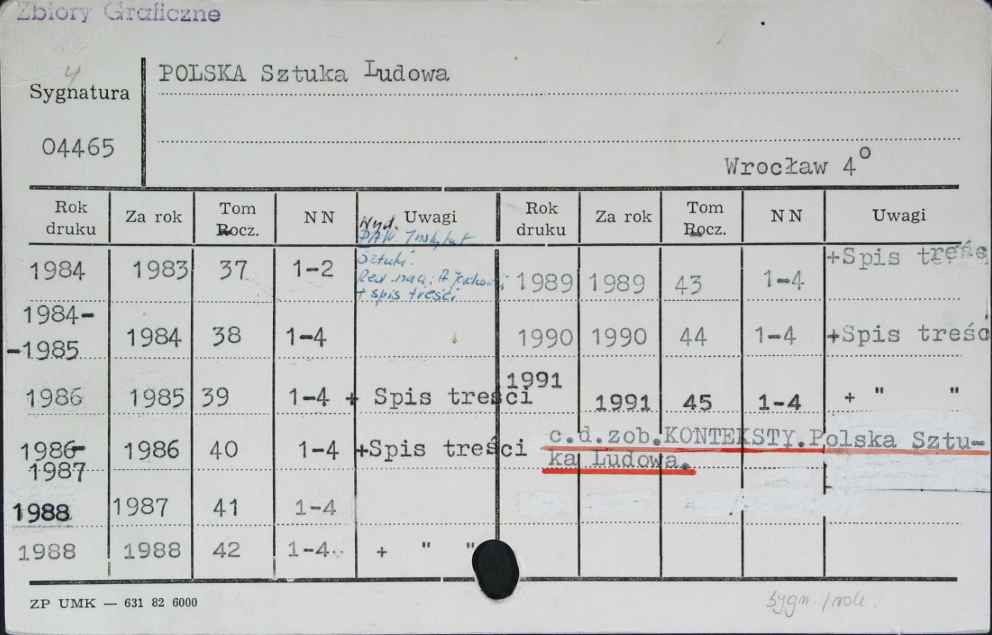 Zbiory Graficzne
4
Sygnatura
04465
POLSKA Sztuka Ludowa
Wrocław 4°
Rok druku Za rok Tom Rocz. NN Uwagi Rok druku Za rok Tom Rocz. NN Uwagi
Wyd.
PAN Instytut
Sztuki.
Red. nacz. A. Jackowski
+ spis treści
1984 1983 37 1-2 1989 1989 43 1-4 +Spis treści
1984-
-1985 1984 38 1-4 1990 1990 44 1-4 +Spis treśc
1986 1985 39 1-4 + Spis treści 1991 1991 45 1-4 + " "
1986-
1987 1986 40 1-4 +Spis treści c.d.zob.KONTEKSTY.Polska Sztu-
ka Ludowa.
1988 1987 41 1-4
1988 1988 42 1-4 + " "
ZP UMK — 631 82 6000
sygn.